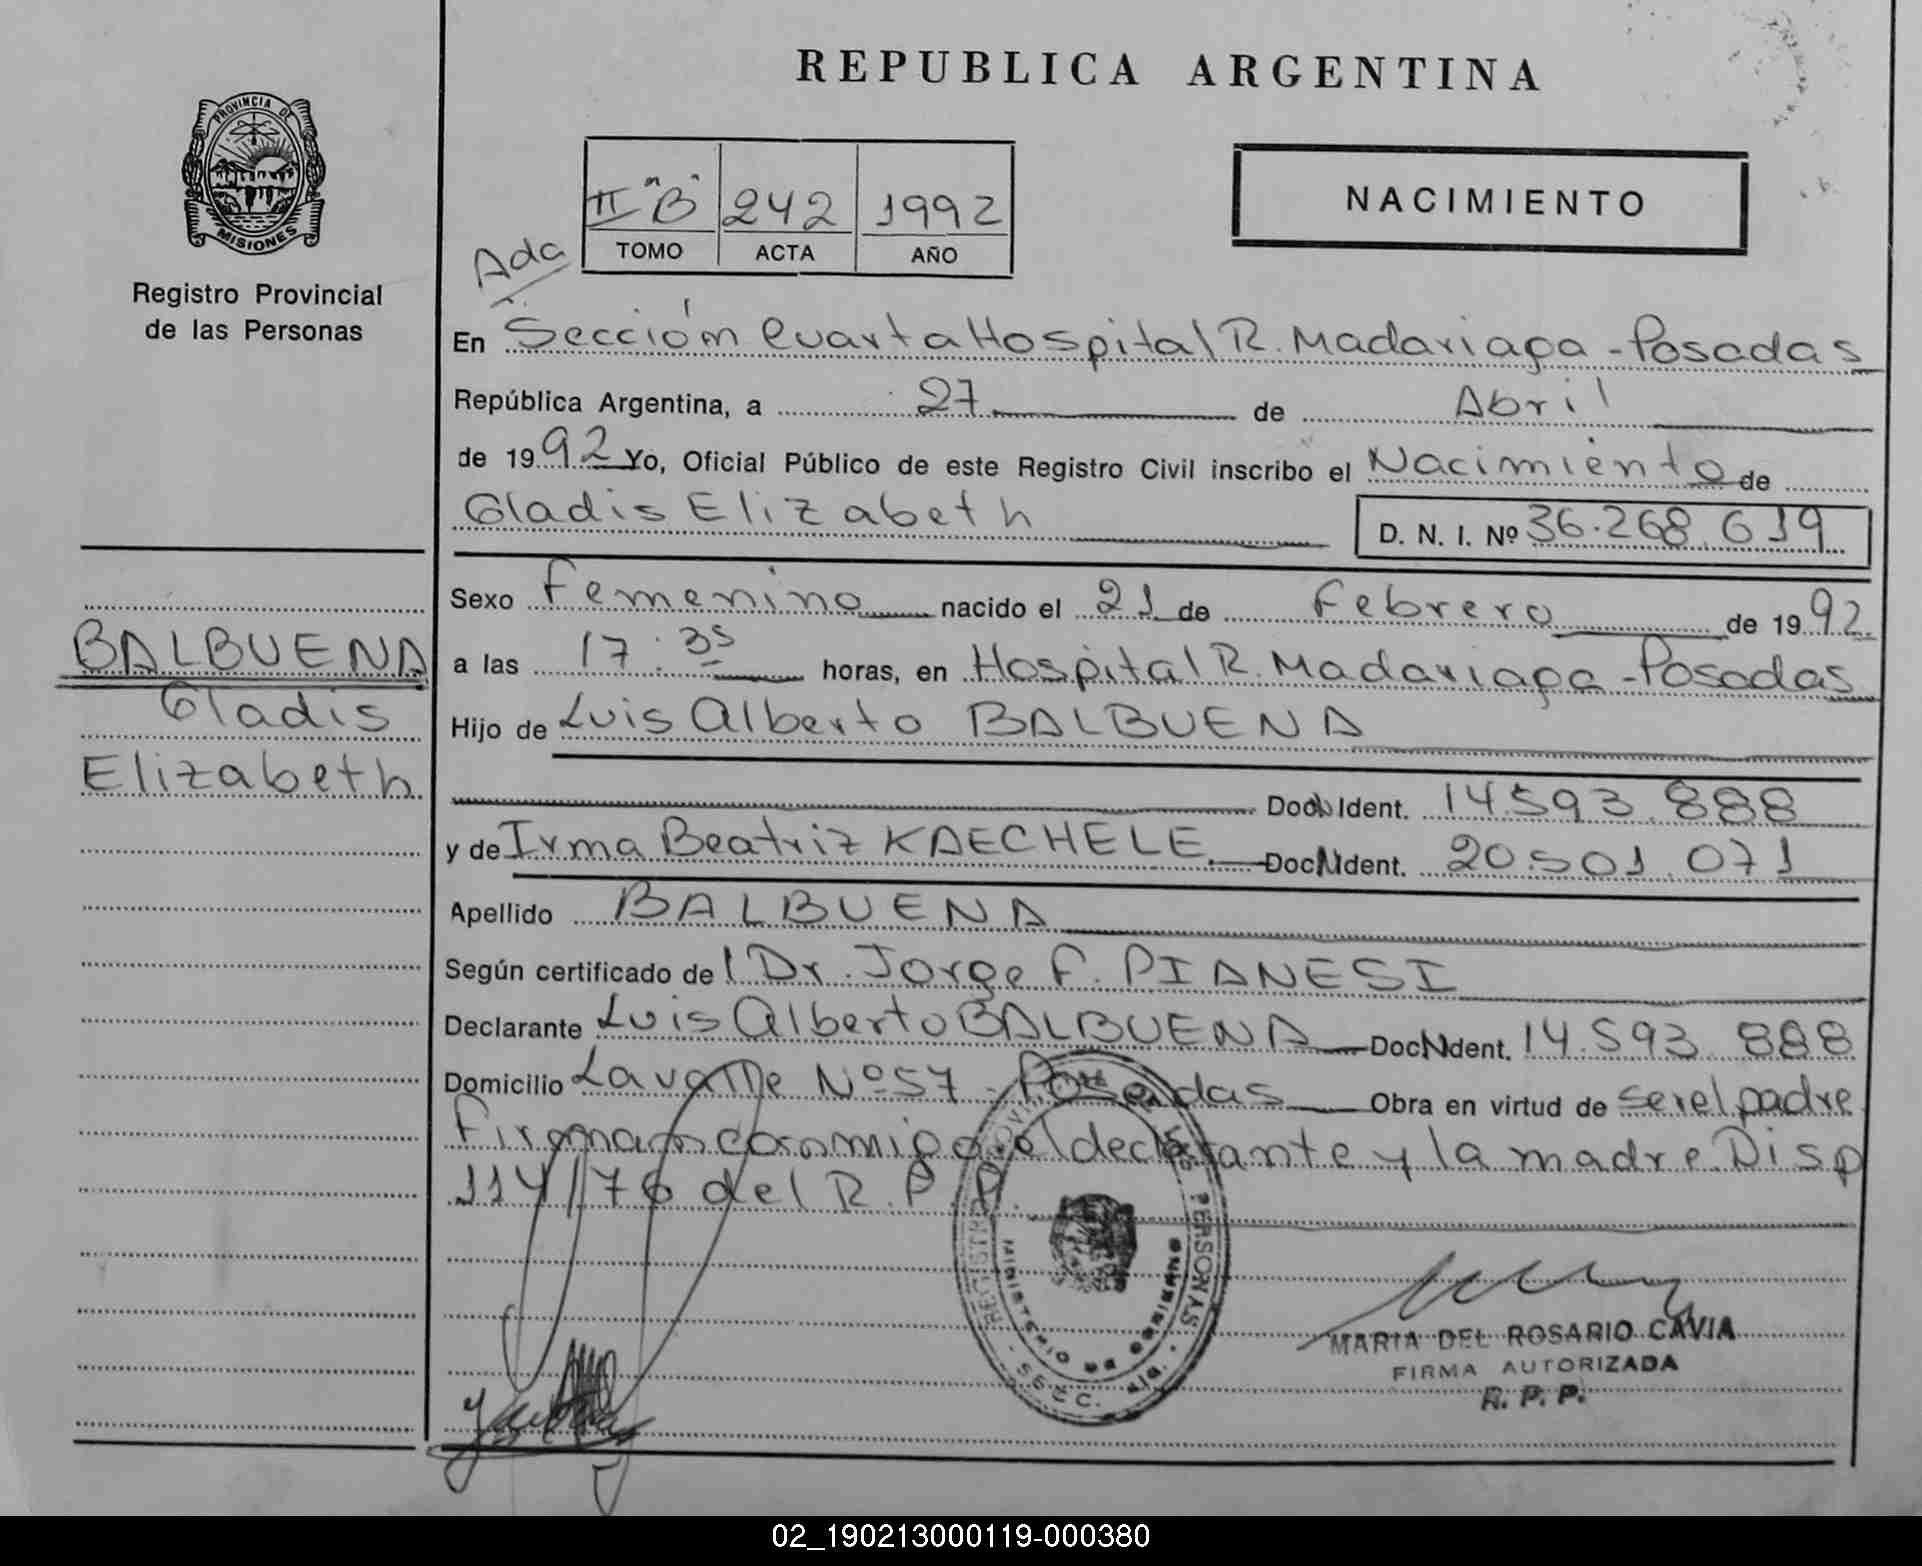 REPUBLICA ARGENTINA
PROVINCIA DE
MISIONES
Registro Provincial
de las Personas
II "B" 242 1992
TOMO ACTA AÑO
NACIMIENTO
Ada
En Sección Cuarta Hospital R. Madariaga - Posadas
República Argentina, a 27 de Abril
de 1992 Yo, Oficial Público de este Registro Civil inscribo el Nacimiento de
Gladis Elizabeth D. N. I. Nº 36.268.619
BALBUENA
Gladis
Elizabeth
Sexo Femenino nacido el 21 de Febrero de 1992
a las 17:35 horas, en Hospital R. Madariaga - Posadas
Hijo de Luis Alberto BALBUENA
Doc. Ident. 14.593.888
y de Irma Beatriz KAECHELE Doc. Ident. 20.501.071
Apellido BALBUENA
Según certificado del Dr. Jorge F. PIANESI
Declarante Luis Alberto BALBUENA Doc. Ident. 14.593.888
Domicilio Lavalle Nº 57 - Posadas Obra en virtud de ser el padre
Firman conmigo el declarante y la madre Disp
114/76 del R.P.P.
PERSONAS
MINISTERIO DE GOBIERNO
MARIA DEL ROSARIO CAVIA
FIRMA AUTORIZADA
R. P. P.
02_190213000119-000380